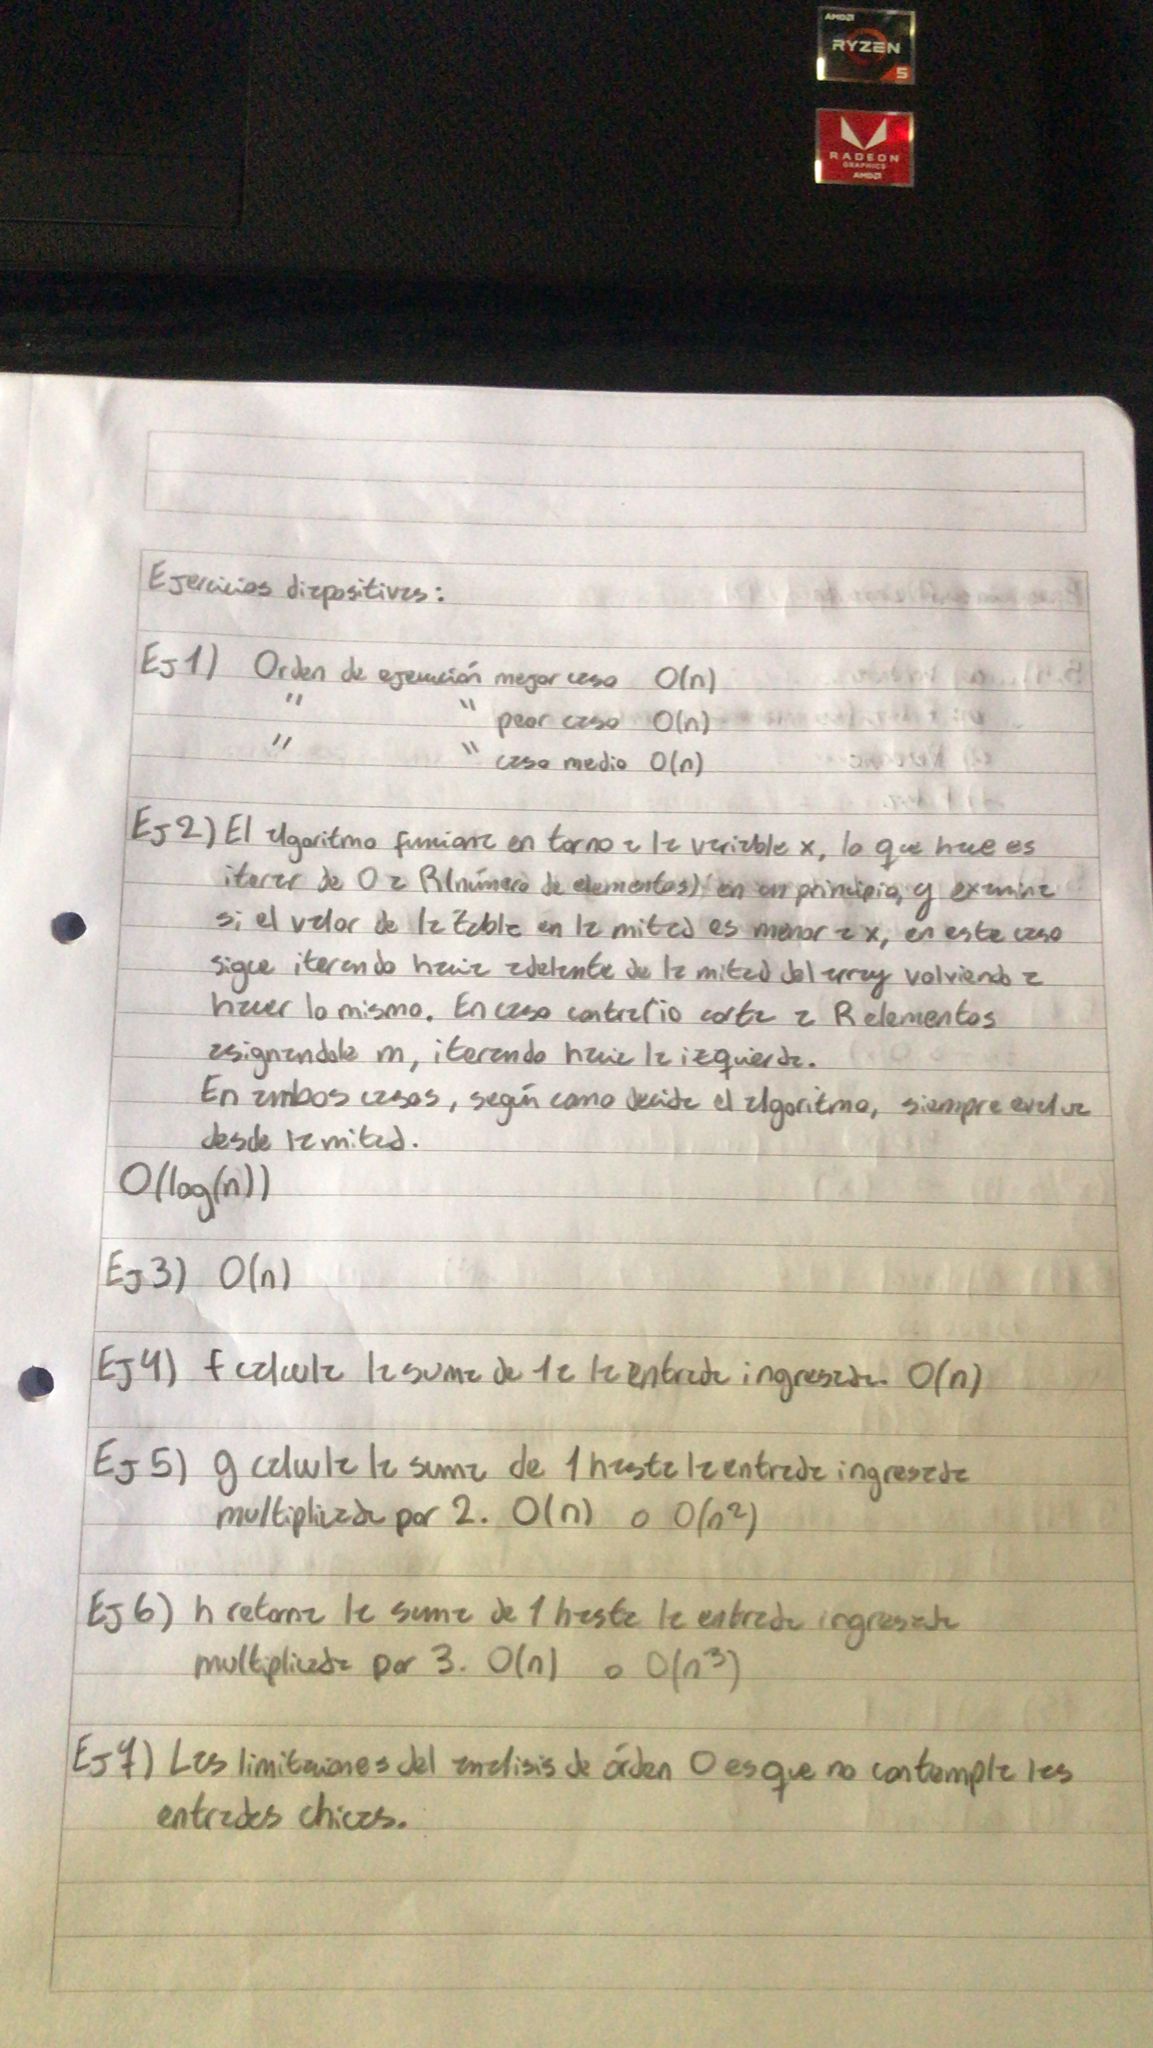 AMD
RYZEN
5
RADEON
GRAPHICS
AMD
Ejercicios diapositivas:
Ej 1) Orden de ejecución mejor caso O(n)
" " peor caso O(n)
" " caso medio O(n)
Ej 2) El algoritmo funciona en torno a la variable x, lo que hace es
iterar de 0 a R(número de elementos) en un principio, y examina
si el valor de la tabla en la mitad es menor a x, en este caso
sigue iterando hacia adelante de la mitad del array volviendo a
hacer lo mismo. En caso contrario corta a R elementos
asignandole m, iterando hacia la izquierda.
En ambos casos, según como decida el algoritmo, siempre evalua
desde la mitad.
O(log(n))
Ej 3) O(n)
Ej 4) f calcula la suma de 1 a la entrada ingresada. O(n)
Ej 5) g calcula la suma de 1 hasta la entrada ingresada
multiplicada por 2. O(n) o O(n²)
Ej 6) h retorna la suma de 1 hasta la entrada ingresada
multiplicada por 3. O(n) o O(n³)
Ej 7) Las limitaciones del analisis de órden O es que no contempla las
entradas chicas.